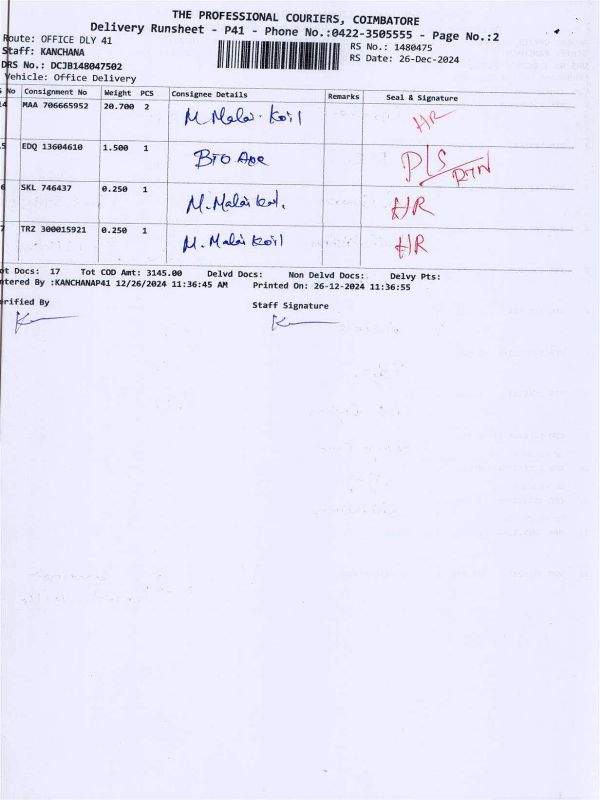 THE PROFESSIONAL COURIERS, COIMBATORE
Delivery Runsheet - P41 - Phone No.:0422-3505555 - Page No.:2
Route: OFFICE DLY 41
RS No.: 1480475
Staff: KANCHANA
RS Date: 26-Dec-2024
DRS No.: DCJB148047502
Vehicle: Office Delivery
No Consignment No Weight PCS Consignee Details Remarks Seal & Signature
4 MAA 706665952 20.700 2 M Malai Koil HR
5 EDQ 13604610 1.500 1 PLS RTN
6 SKL 746437 0.250 1 M. Malai Koil. HR
7 TRZ 300015921 0.250 1 M. Malai Koil HR
ot Docs: 17 Tot COD Amt: 3145.00 Delvd Docs: Non Delvd Docs: Delvy Pts:
ntered By :KANCHANAP41 12/26/2024 11:36:45 AM Printed On: 26-12-2024 11:36:55
erified By Staff Signature